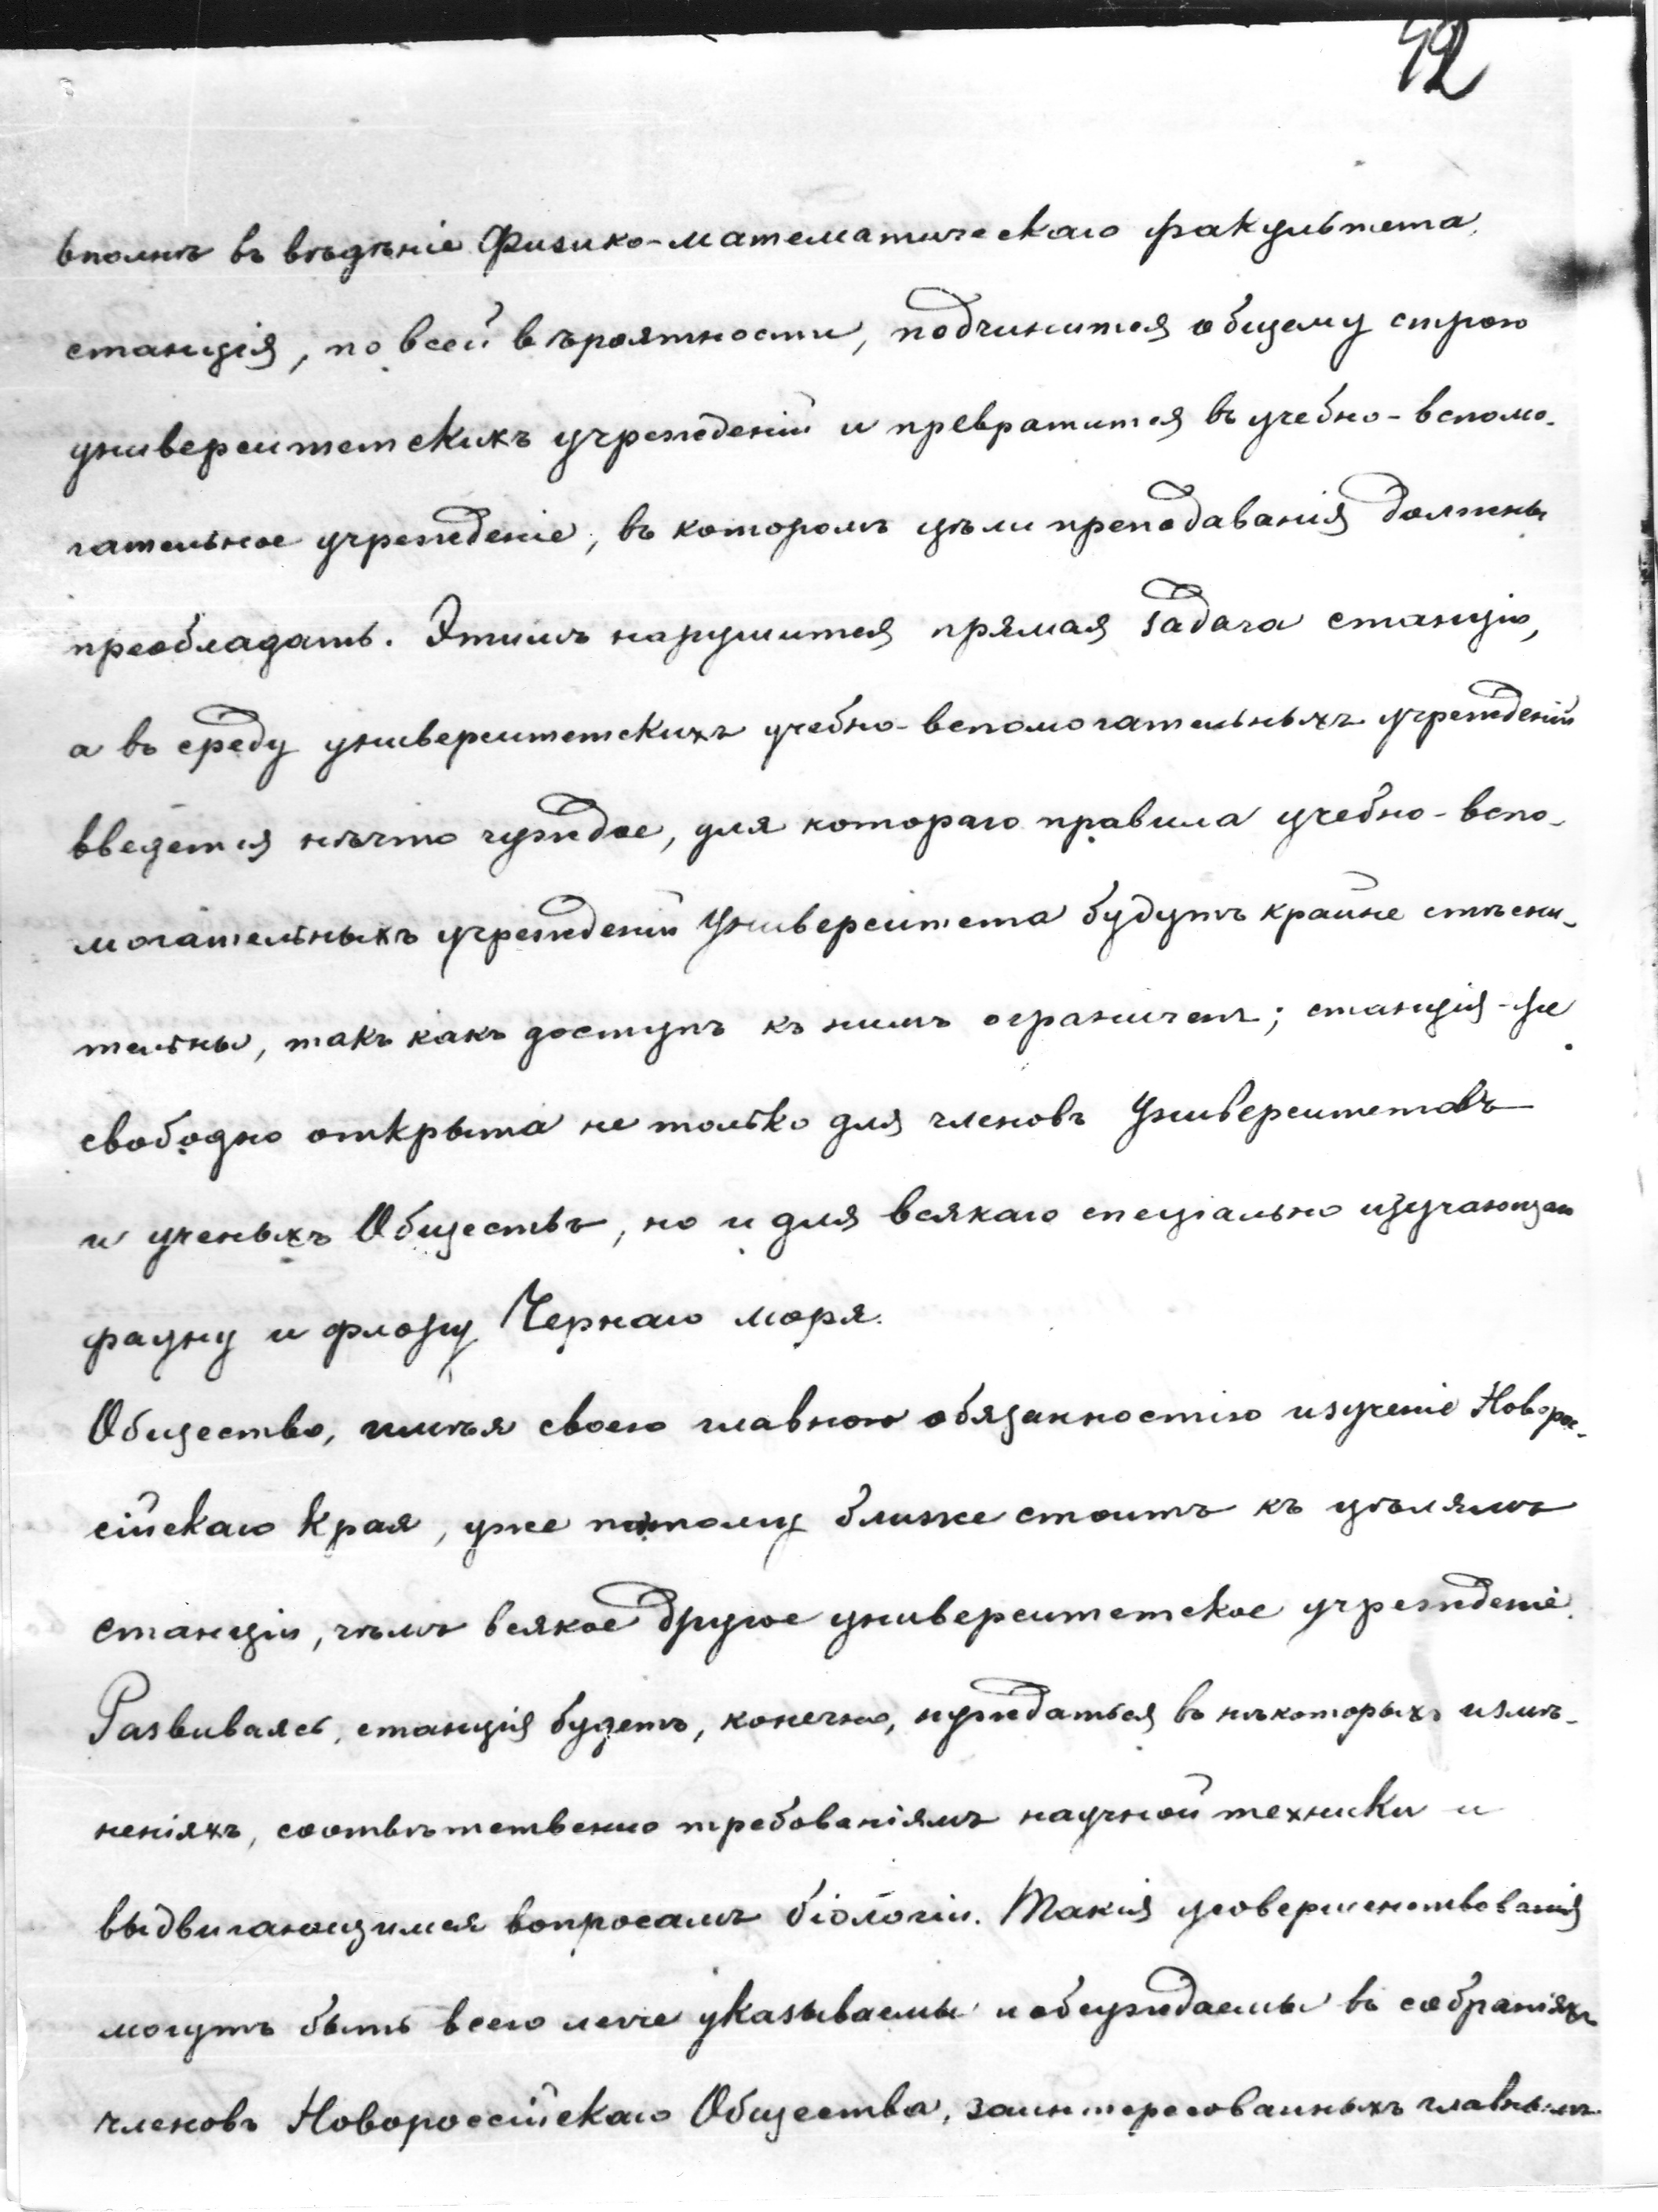 42
вполнѣ въ вѣдѣніе Физико-математическаго факультета,
станція, по всей вѣроятности, подчинится общему строю
университетскихъ учрежденій и превратится въ учебно-вспомо-
гательное учрежденіе, въ которомъ цѣли преподаванія должны
преобладать. Этимъ нарушится прямая задача станціи,
а въ среду университетскихъ учебно-вспомогательныхъ учрежденій
введется нѣчто чуждое, для котораго правила учебно-вспо-
могательныхъ учрежденій Университета будутъ крайне стѣсни-
тельны, такъ какъ доступъ къ нимъ ограниченъ; станція-же
свободно открыта не только для членовъ Университетовъ
и ученыхъ Обществъ, но и для всякаго спеціально изучающаго
фауну и флору Чернаго моря.
Общество, имѣя своею главною обязанностію изученіе Новорос-
сійскаго края, уже потому ближе стоитъ къ цѣлямъ
станціи, чѣмъ всякое другое университетское учрежденіе.
Развиваясь, станція будетъ, конечно, нуждаться въ нѣкоторыхъ измѣ-
неніяхъ, соотвѣтственно требованіямъ научной техники и
выдвигающимся вопросамъ біологіи. Такія усовершенствованія
могутъ быть всего легче указываемы и обсуждаемы въ собраніяхъ
членовъ Новороссійскаго Общества, заинтересованныхъ главнымъ